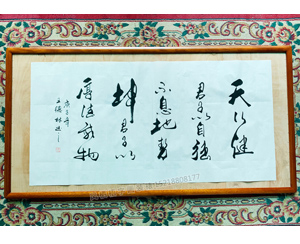 天行健
君子以自強
不息地勢
坤君子以
厚德載物